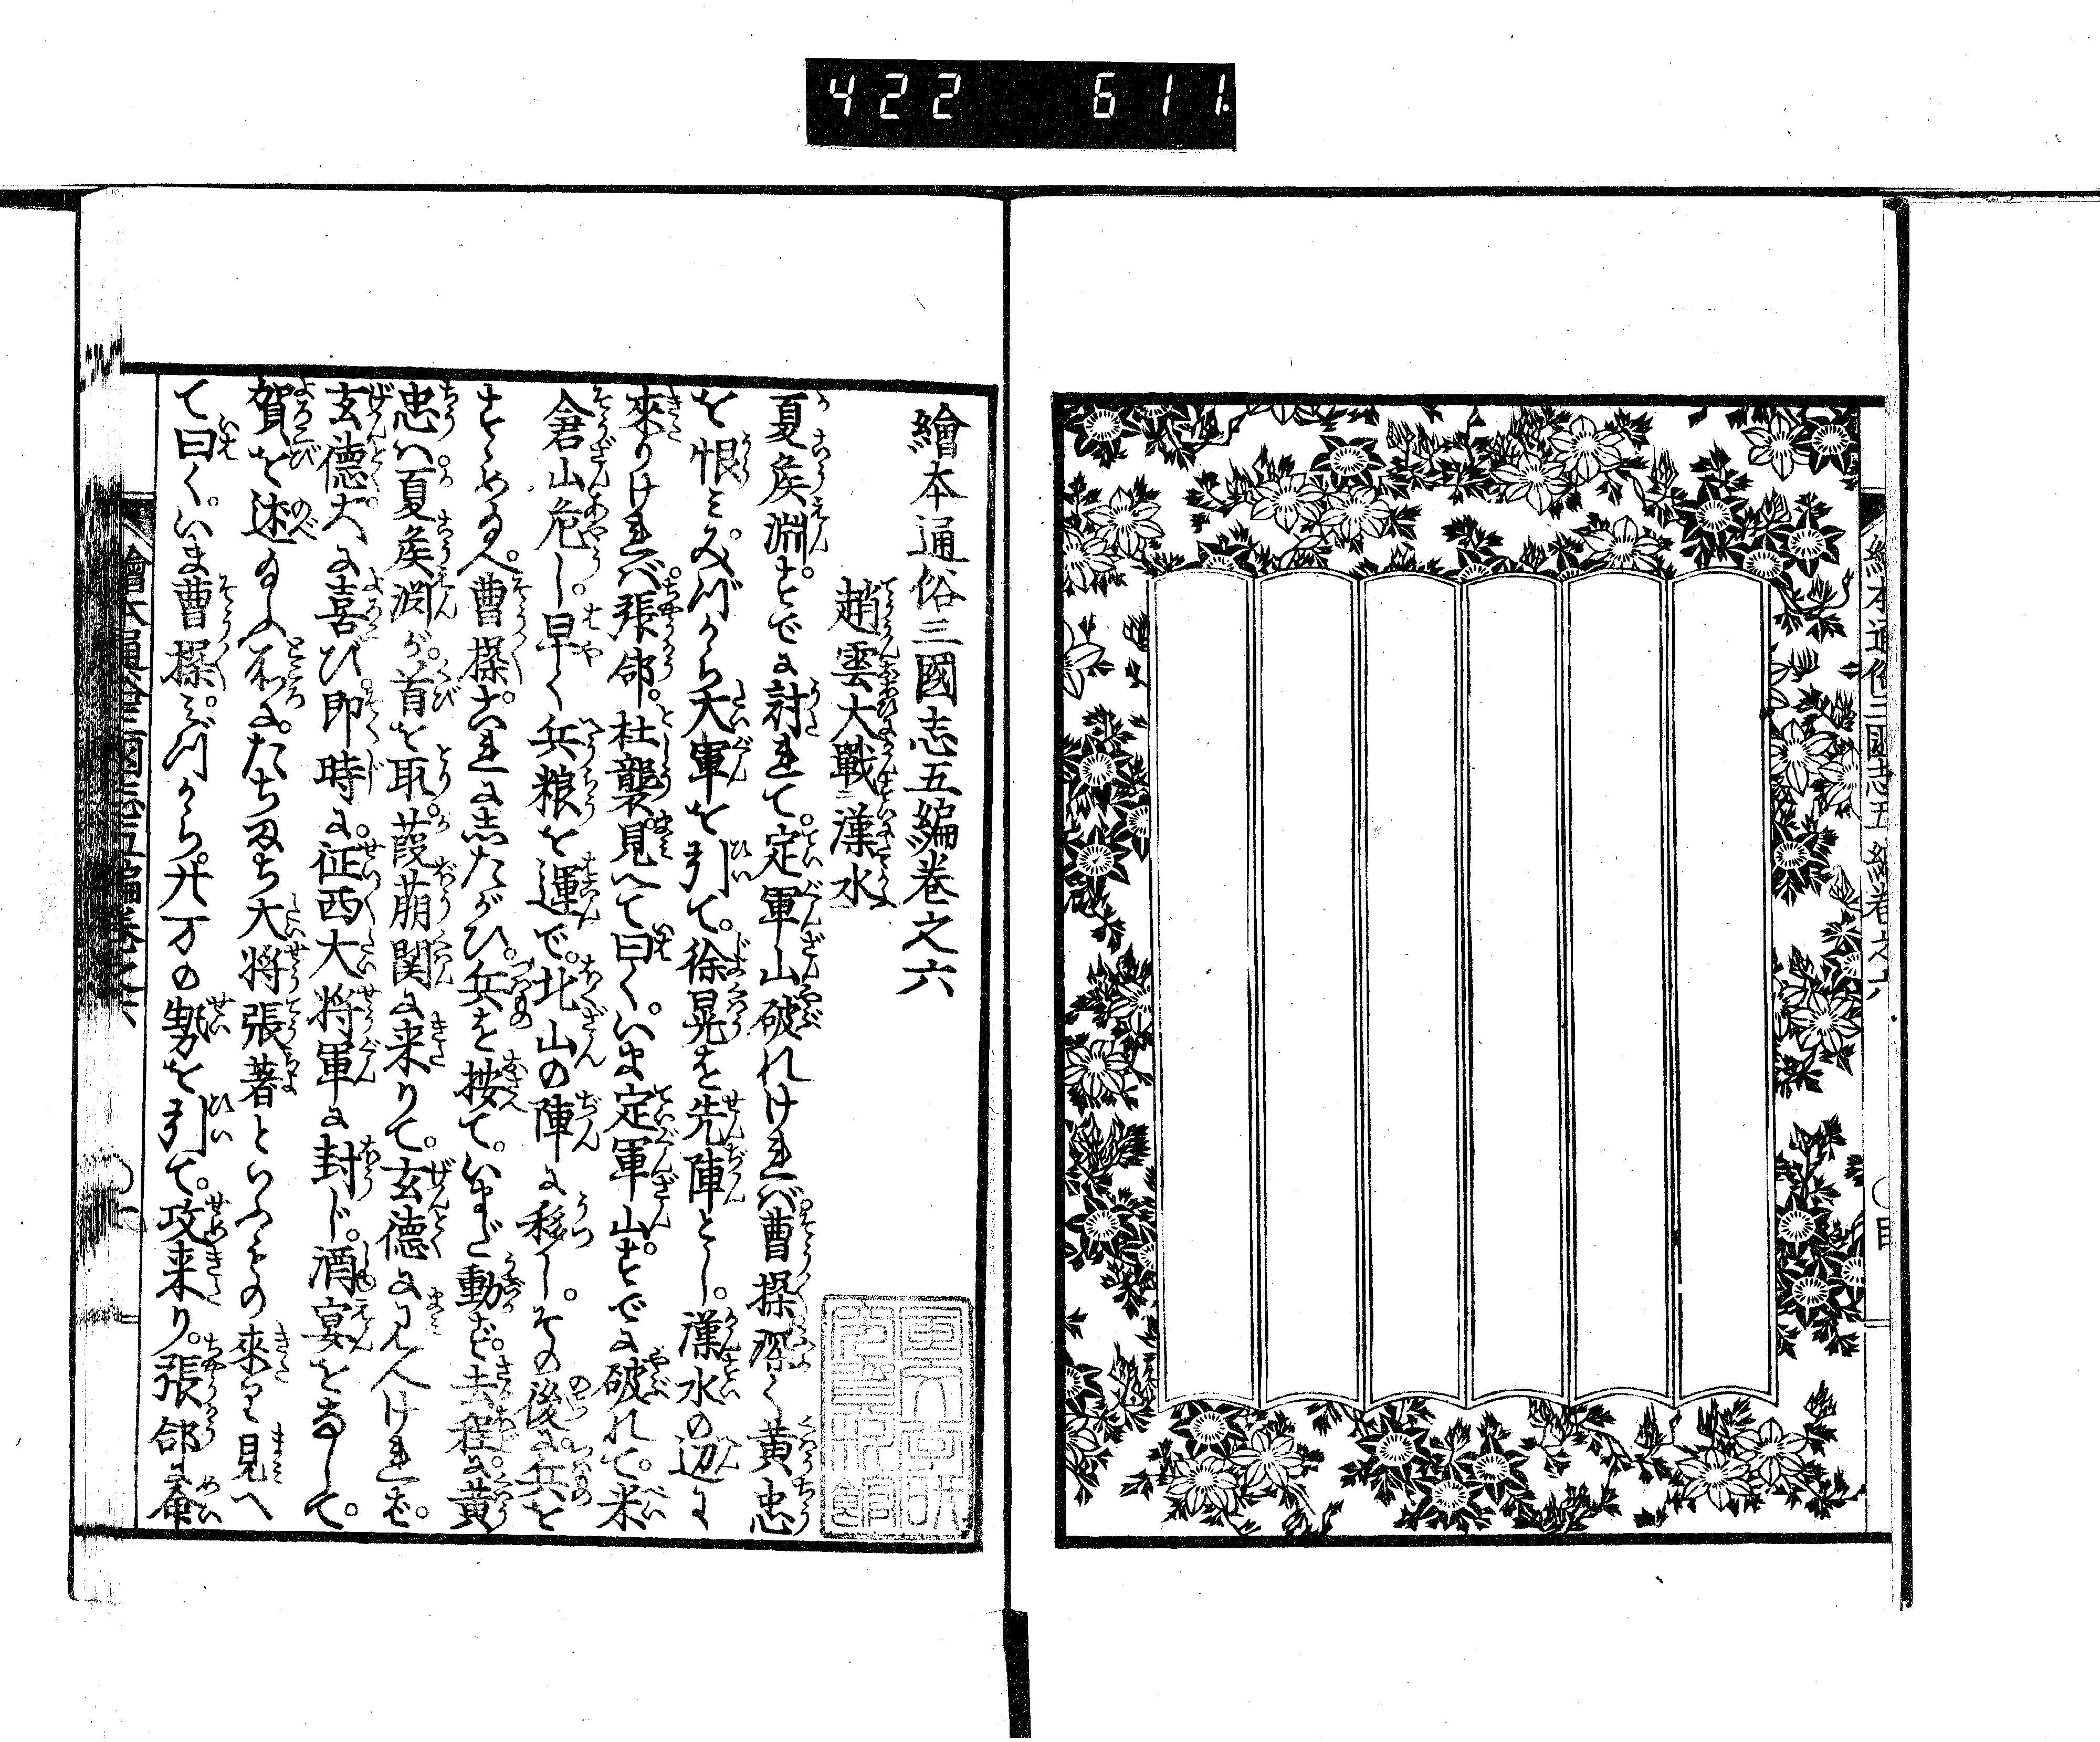 422 611.
繪本通俗三國志五編卷之六
繪本通俗三國志五編卷之六
趙雲大戰漢水
夏侯淵。すでに討れて。定軍山破れければ。曹操深く黄忠
を恨み。みづから大軍を引て。徐晃を先陣とし。漢水の辺に
來りければ。張郃。杜襲見へて曰く。いま定軍山。すでに破れて。米
倉山危し。早く兵粮を運で。北山の陣に移し。その後に兵を
すゝめ給へ。曹操。これにしたがひ。兵を按て。いまだ動ず。去程に黄
忠ハ夏侯淵が。首を取。葭萌関に来りて。玄德に見へければ。
玄德大に喜び。即時に。征西大将軍に封じ。酒宴をなして。
賀を述給ふ所に。たちまち大将張著といふもの來り見へ
て曰く。いま曹操。みづから。廾万の勢を引て。攻来り。張郃に命